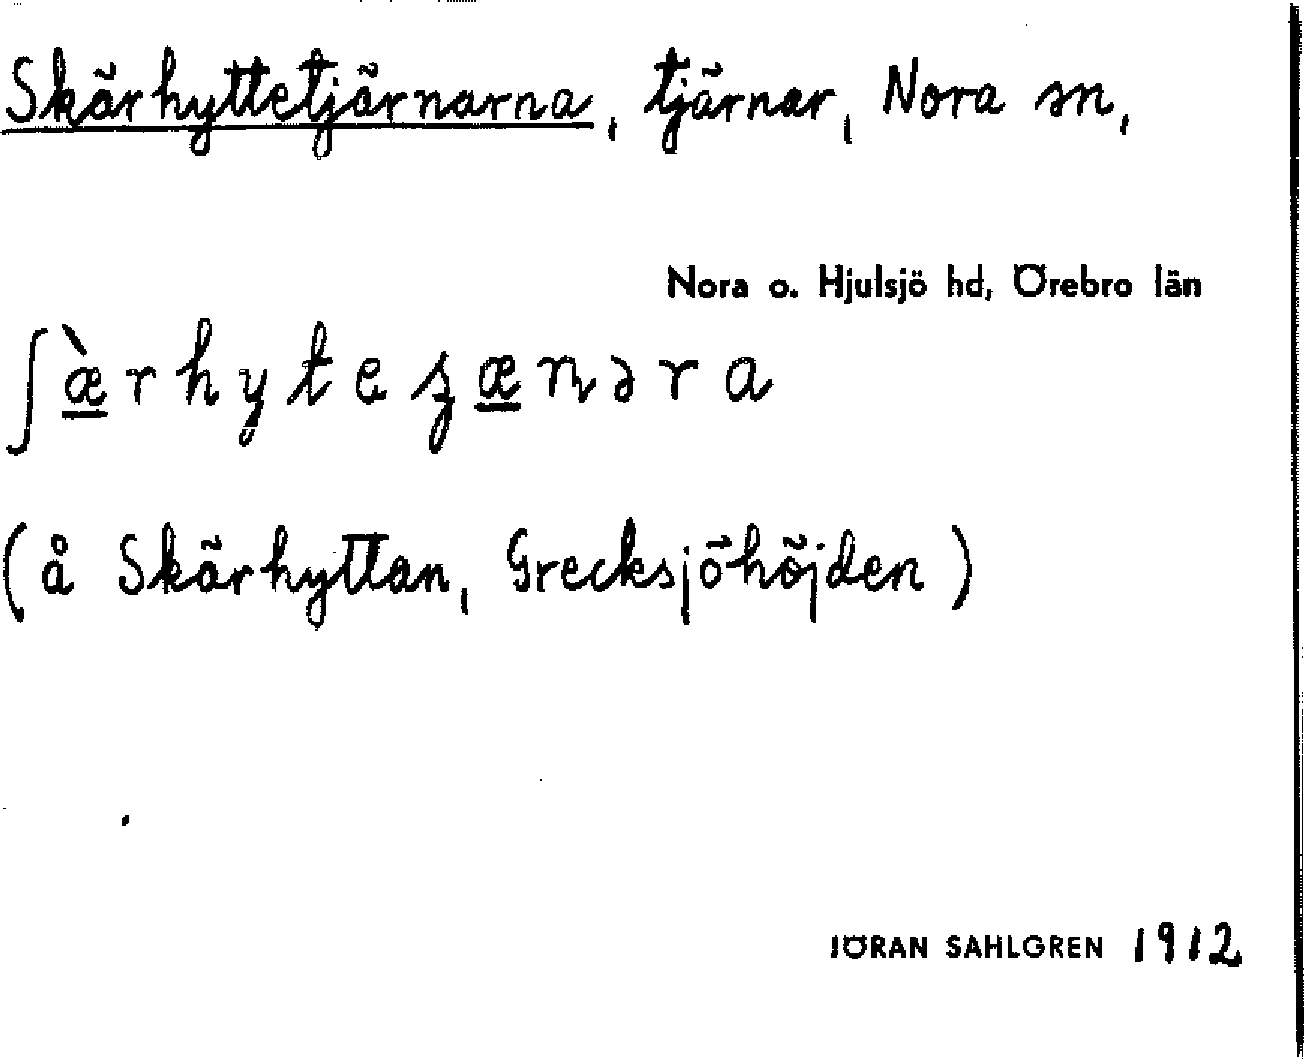 Skärhyttetjärnarna, tjärnar, Nora sn,
Nora o. Hjulsjö hd, Örebro län
ʃæ̀rhyteʒænəra
(å Skärhyttan, Grecksjöhöjden)
JÖRAN SAHLGREN 1912